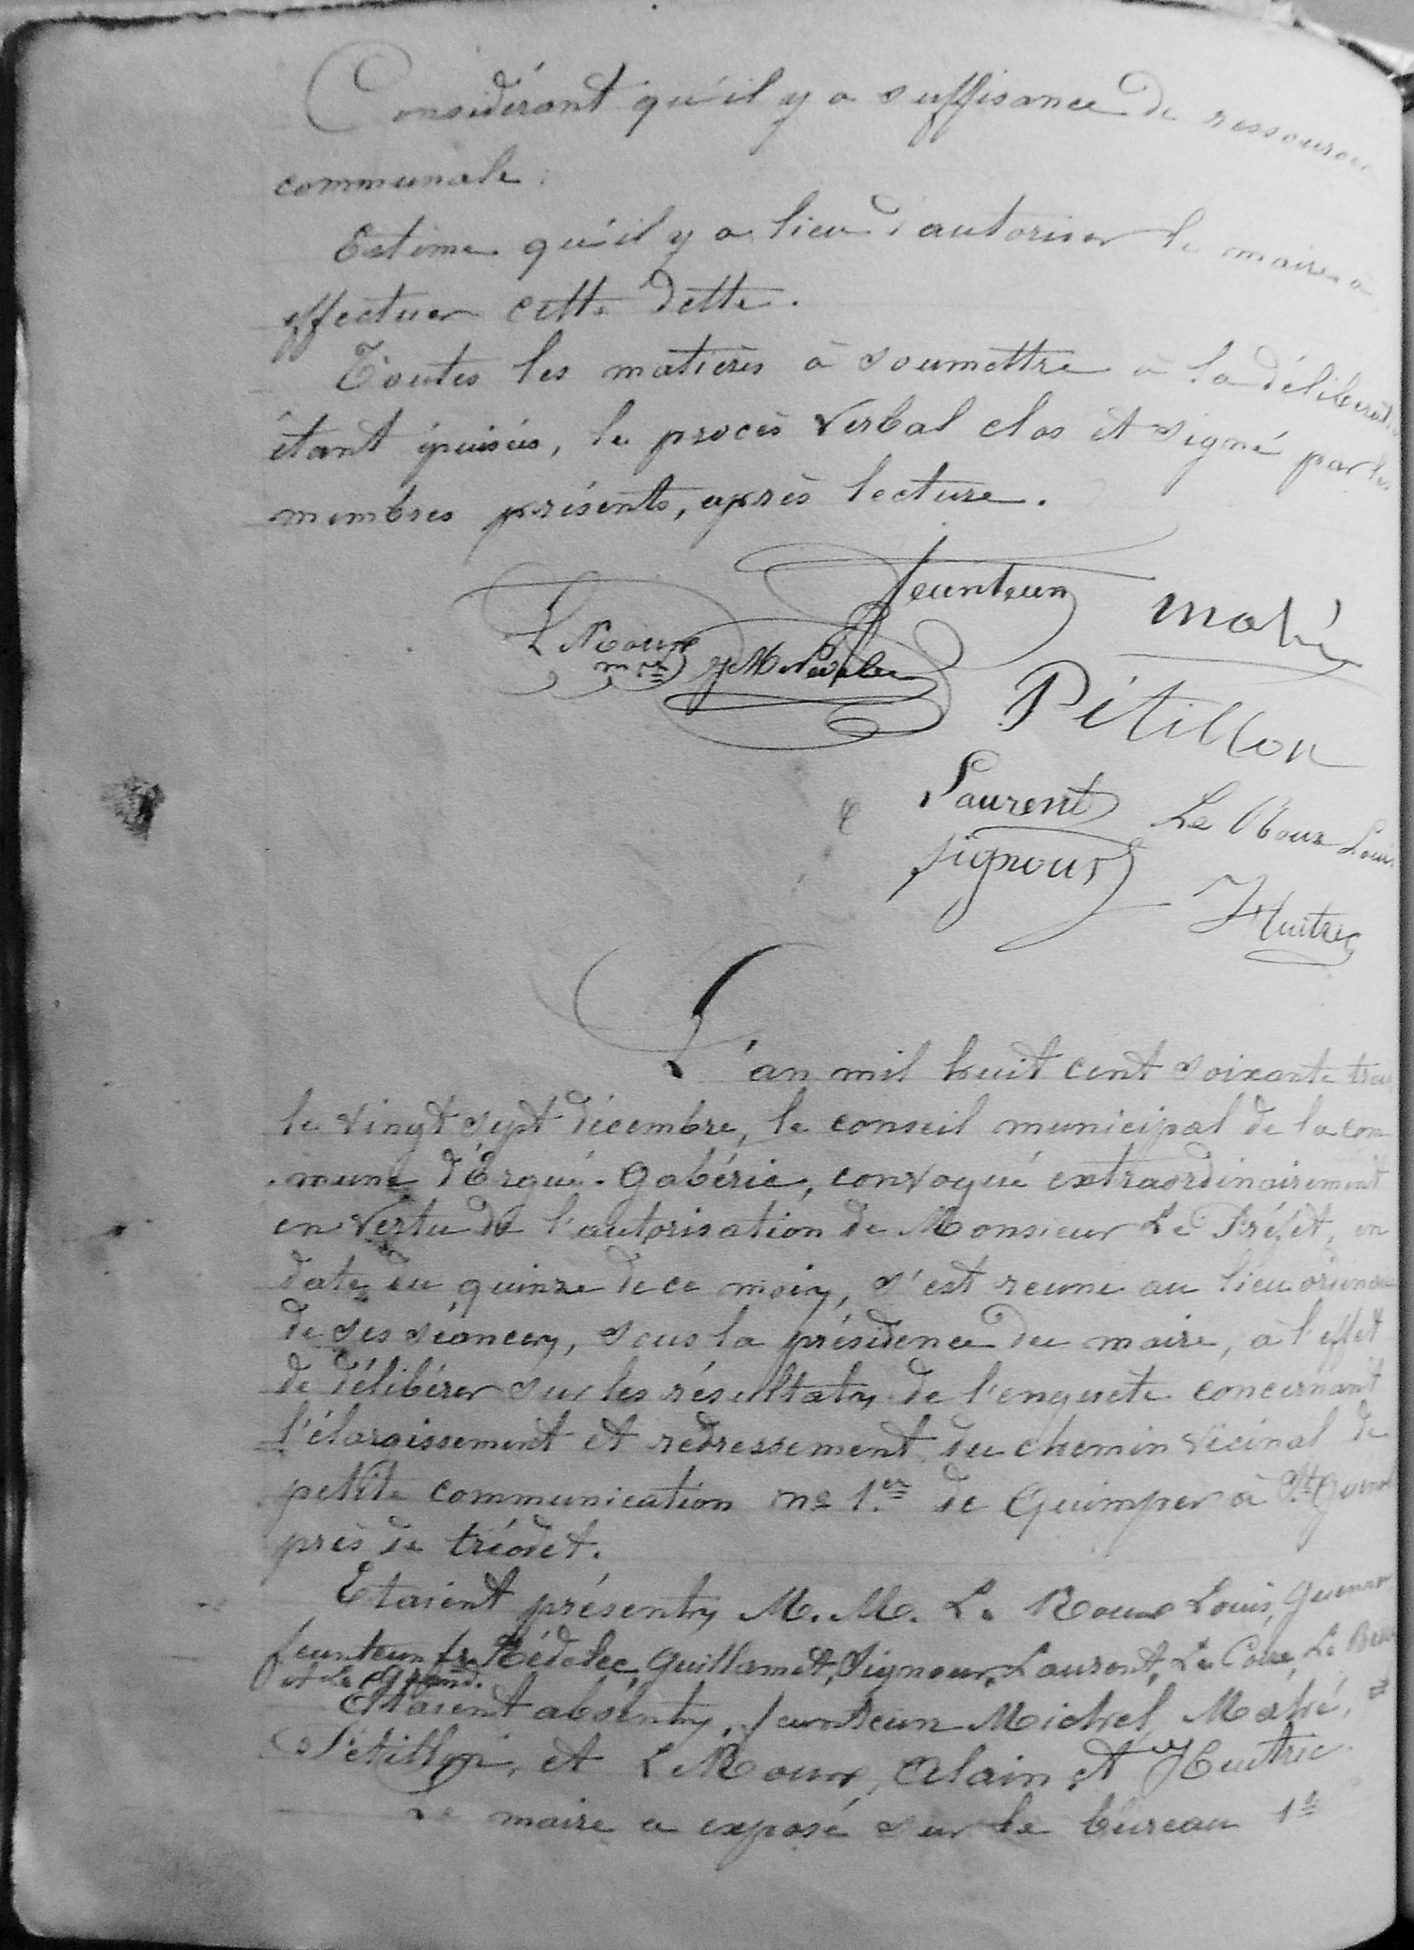 Considérant qu'il y a suffisance de ressources
communale.
Estime qu'il y a lieu d'autoriser le maire à
effectuer cette dette.
Toutes les matières à soumettre à la délibérat
étant épuisées, le procès verbal clos et signé par les
membres présents, après lecture.
feunteun Mahé
L Roux mre
Pétillon
Laurent Le Roux Louis
Signour Huitric
L'an mil huit cent soixante trois
le vingt sept décembre, le conseil municipal de la com
mune d'Ergué-Gabéric, convoqué extraordinairement
en vertu de l'autorisation de Monsieur Le Préfet, en
date du quinze de ce mois, s'est reuni au lieu
de ses séances, sous la présidence du maire, à l'effet
de délibérer sur les résultats de l'enquete concernant
l'élargissement et redressement du chemin vicinal de
petite communication no 1.er de Quimper à St Guénol
près de tréodet.
Etaient présents M. M. Le Roux Louis,
feunteun fr, Nédelec, Guillamet, Signour, Laurent, Le Corre, Le
et Le Grand.
Etaient absents, feunteun Michel, Mahé,
Pétillon, et L Roux, Alain, et Huitric
Le maire a exposé sur le bureau 1º